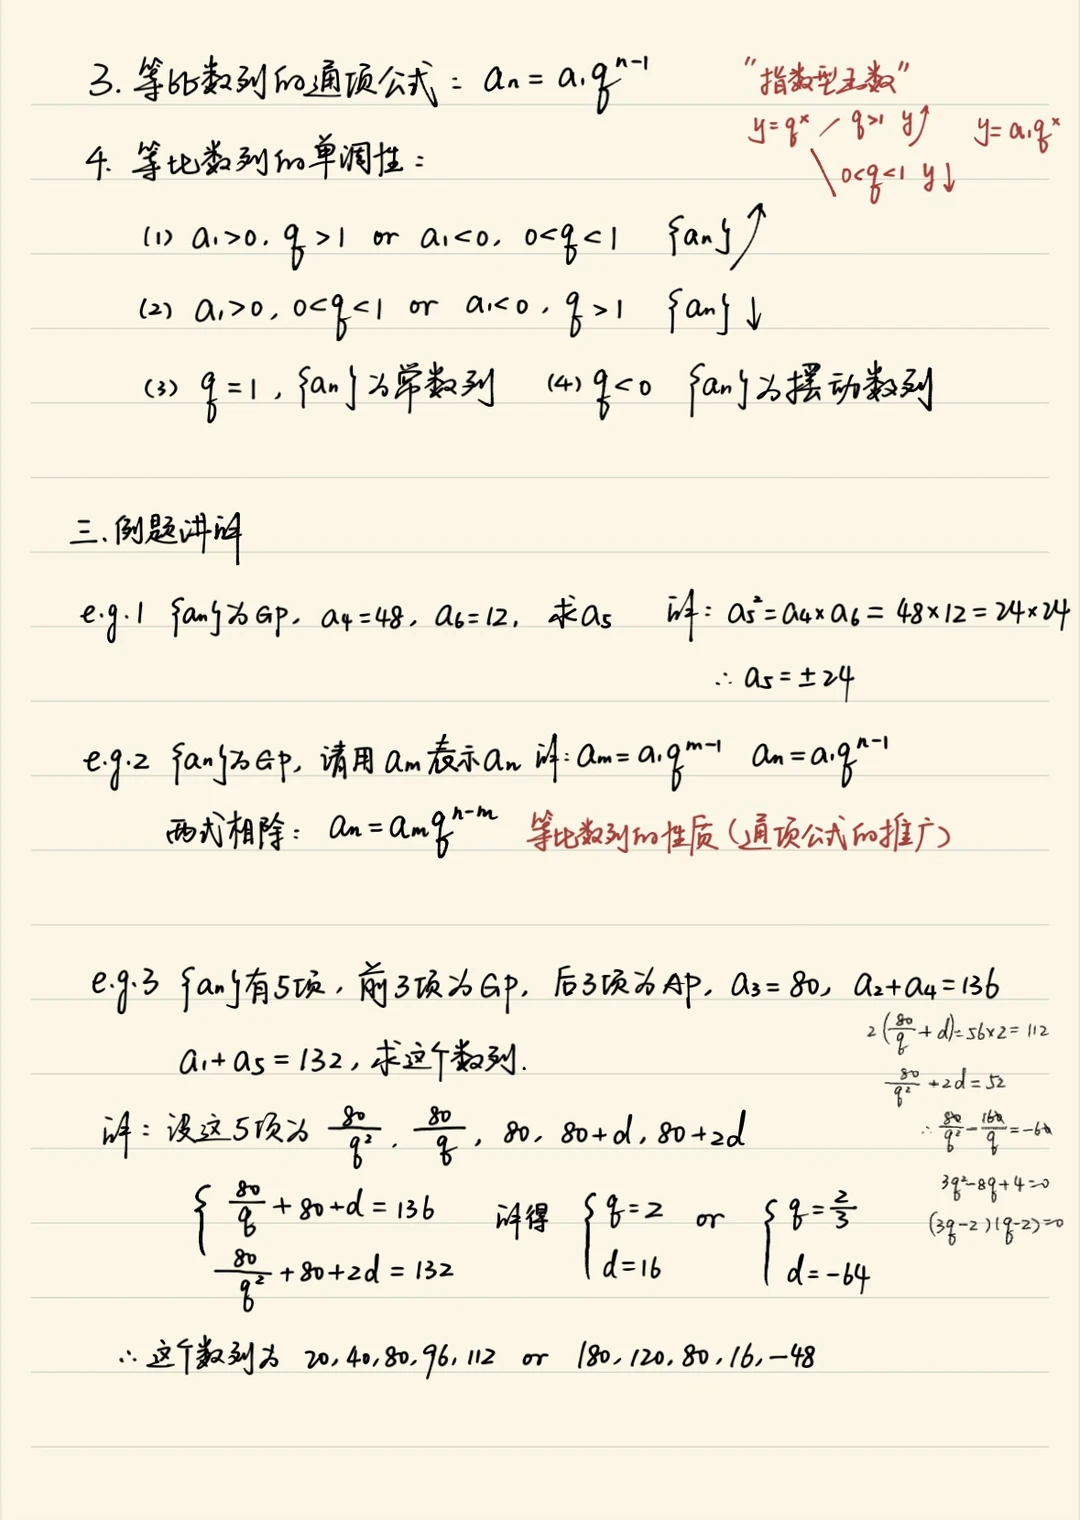 3. 等比数列的通项公式：aₙ = a₁qⁿ⁻¹
"指数型函数"
y=qˣ q>1 y↗ y=a₁qˣ
0<q<1 y↓
4. 等比数列的单调性：
(1) a₁>0, q>1 or a₁<0, 0<q<1 {aₙ}↗
(2) a₁>0, 0<q<1 or a₁<0, q>1 {aₙ}↓
(3) q=1, {aₙ}为常数列 (4) q<0 {aₙ}为摆动数列
三. 例题讲解
e.g.1 {aₙ}为GP, a₄=48, a₆=12, 求a₅ 解: a₅²=a₄×a₆=48×12=24×24
∴ a₅=±24
e.g.2 {aₙ}为GP, 请用aₘ表示aₙ 解: aₘ=a₁qᵐ⁻¹ aₙ=a₁qⁿ⁻¹
两式相除: aₙ=aₘqⁿ⁻ᵐ 等比数列的性质(通项公式的推广)
e.g.3 {aₙ}有5项, 前3项为GP, 后3项为AP, a₃=80, a₂+a₄=136
a₁+a₅=132, 求这个数列.
2(80/q+d)=56×2=112
80/q²+2d=52
∴ 80/q²-160/q=-60
3q²-8q+4=0
(3q-2)(q-2)=0
解: 设这5项为 80/q², 80/q, 80, 80+d, 80+2d
{ 80/q+80+d=136 解得 { q=2 or { q=2/3
80/q²+80+2d=132 d=16 d=-64
∴ 这个数列为 20, 40, 80, 96, 112 or 180, 120, 80, 16, -48